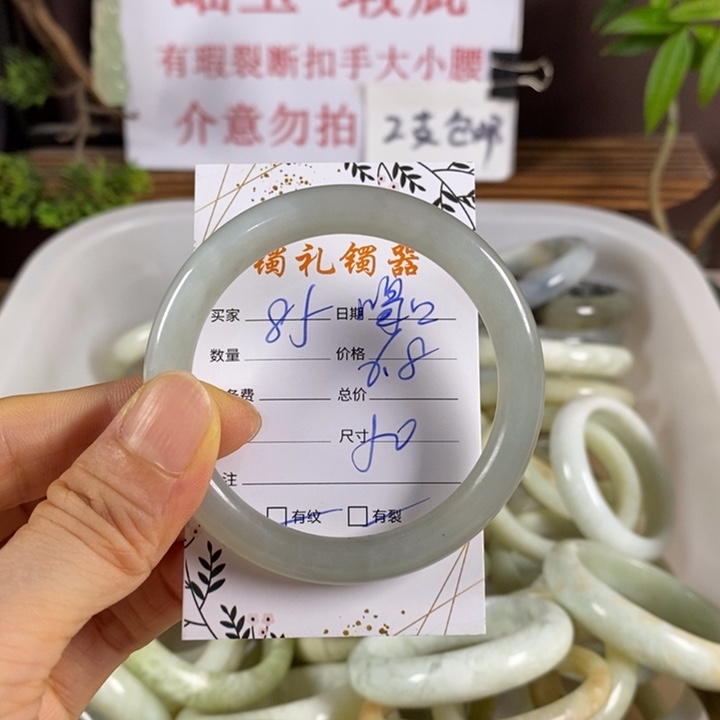 有瑕裂断扣手大小腰
介意勿拍 2支包邮
镯礼镯器
买家 85 日期
数量 价格 6.8
费 总价
尺寸 50
注
有纹 有裂